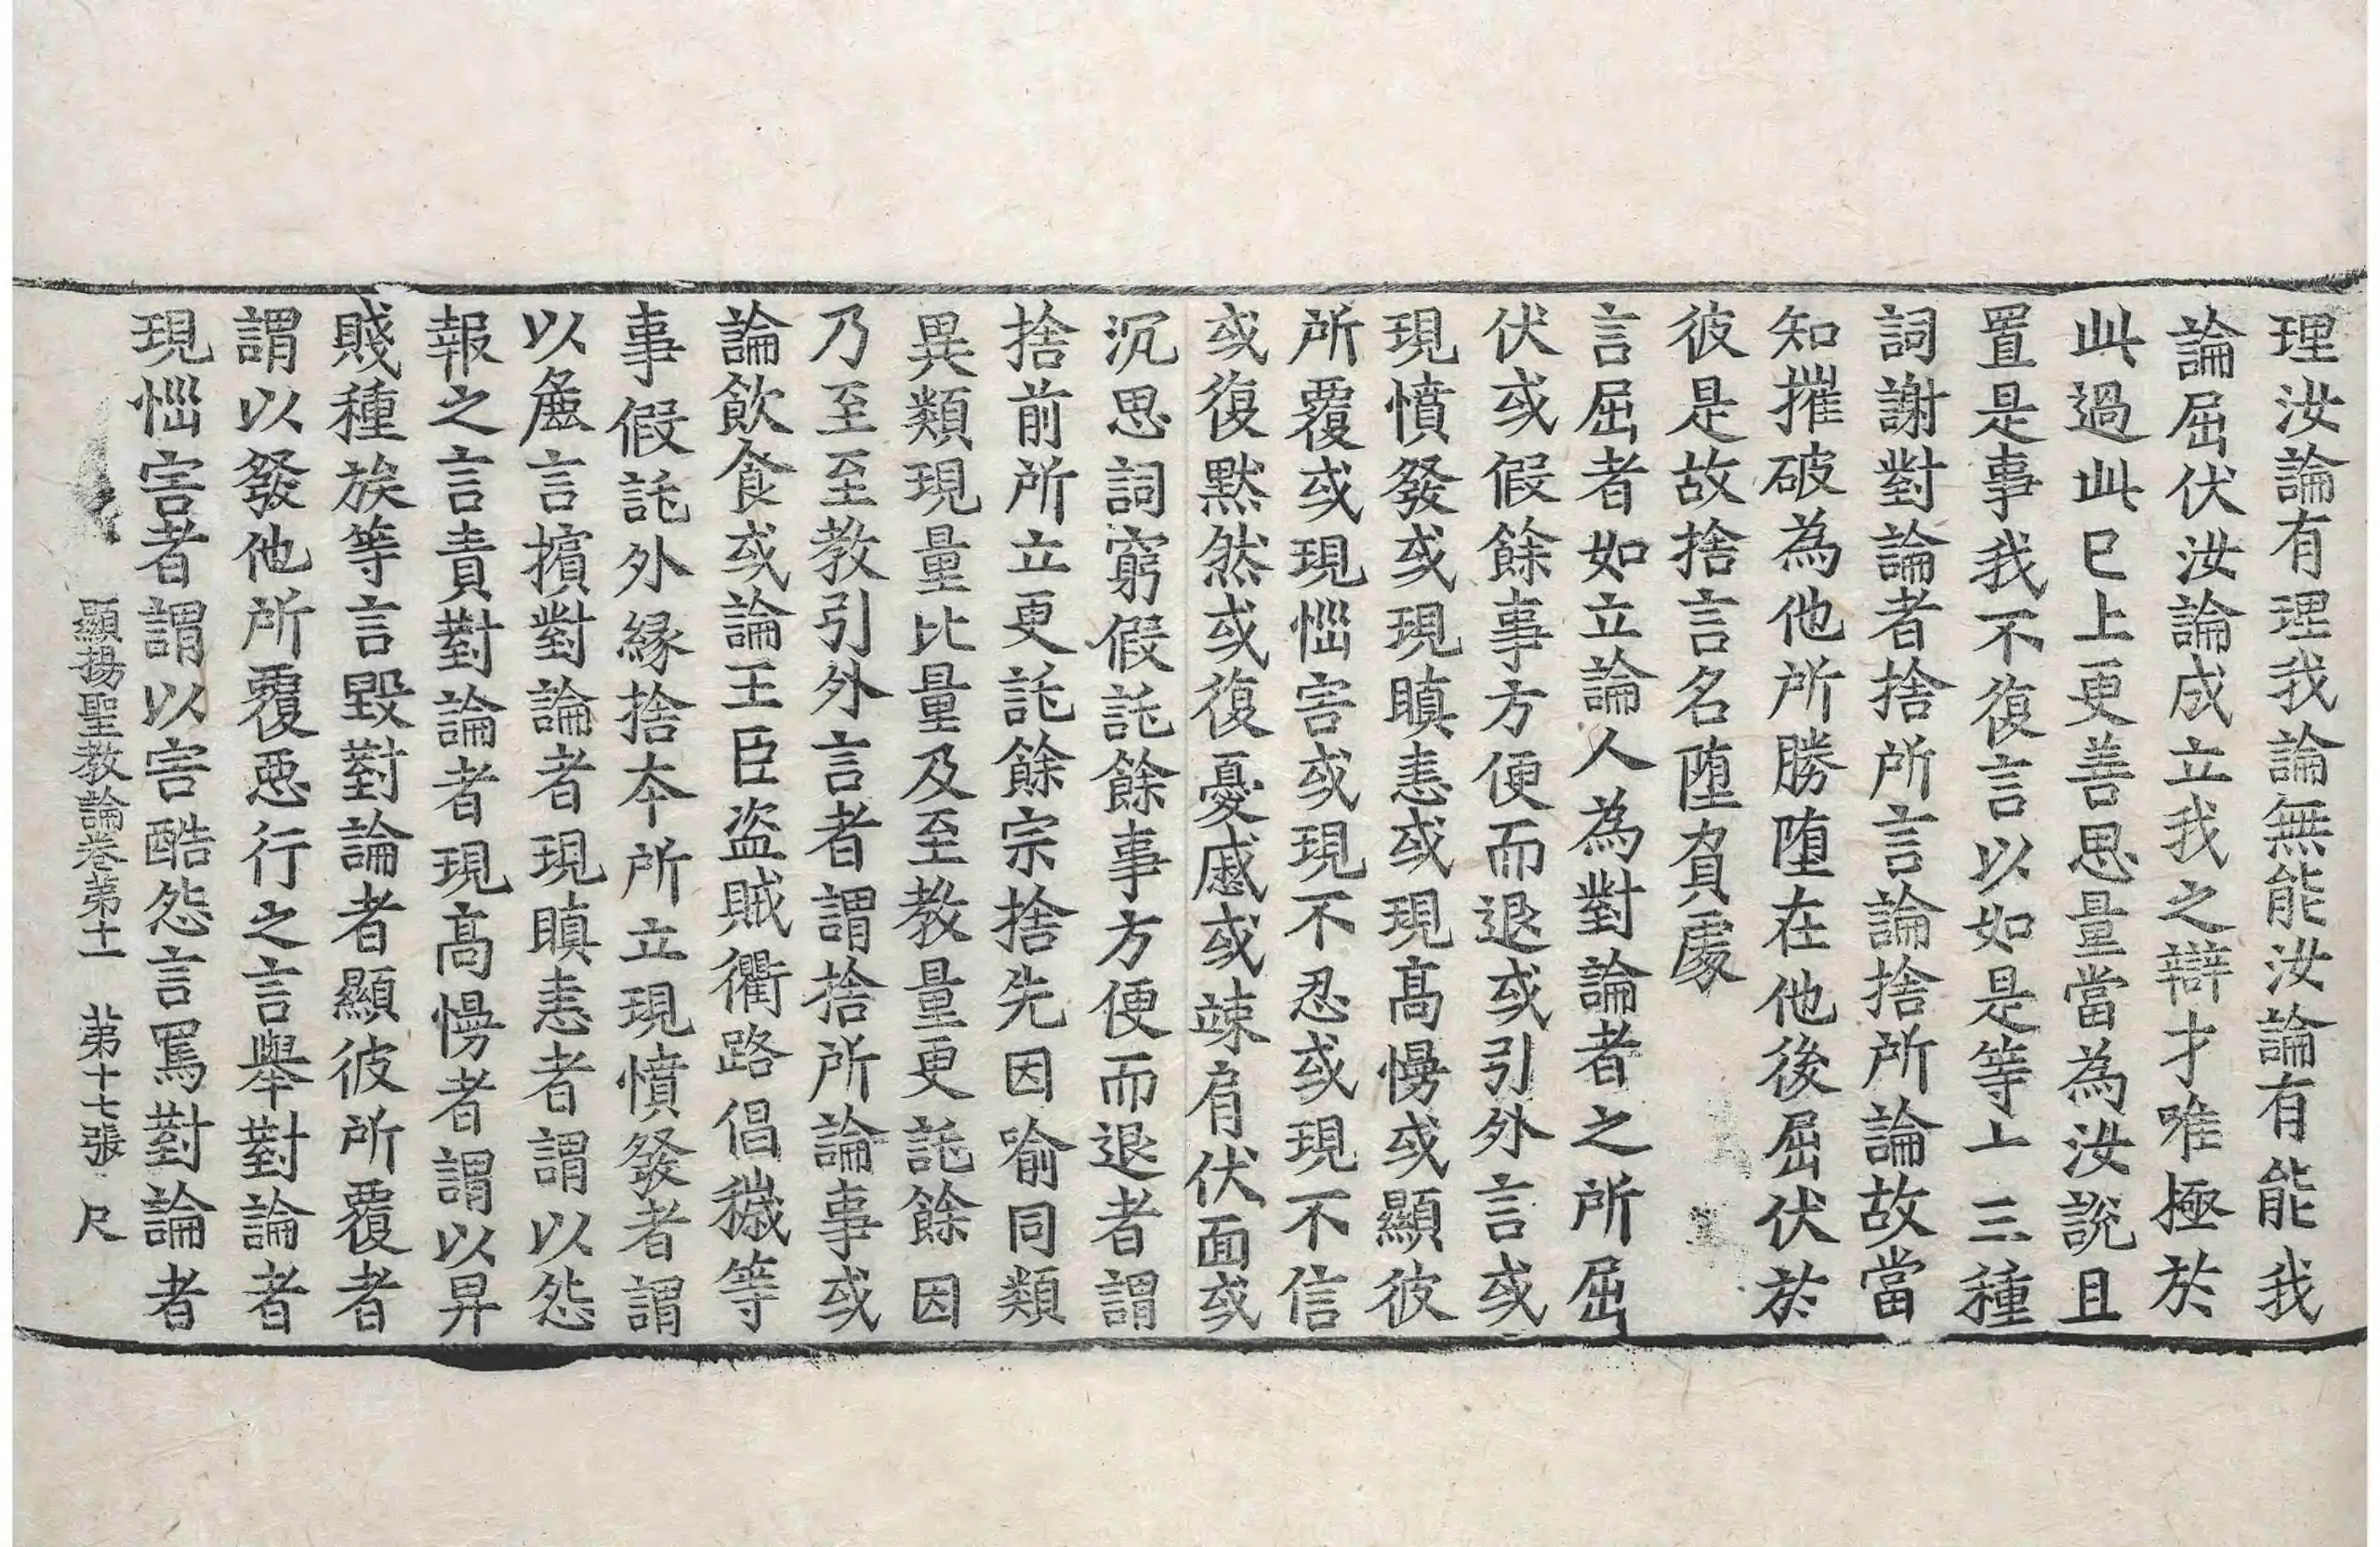 理汝論有理我論無能汝論有能我
論屈伏汝論成立我之辯才唯極於
此過此已上更善思量當為汝說且
置是事我不復言以如是等上三種
詞謝對論者捨所言論捨所論故當
知摧破為他所勝墮在他後屈伏於
彼是故捨言名墮負處
言屈者如立論人為對論者之所屈
伏或假餘事方便而退或引外言或
現憤發或現瞋恚或現高慢或顯彼
所覆或現惱害或現不忍或現不信
或復黙然或復憂慼或竦肩伏面或
沉思詞窮假託餘事方便而退者謂
捨前所立更託餘宗捨先因喻同類
異類現量比量及至教量更託餘因
乃至至教引外言者謂捨所論事或
論飲食或論王臣盗賊衢路倡穢等
事假託外緣捨本所立現憤發者謂
以麁言擯對論者現瞋恚者謂以怨
報之言責對論者現高慢者謂以昇
賤種族等言毀對論者顯彼所覆者
謂以發他所覆惡行之言舉對論者
現惱害者謂以害酷怨言罵對論者
顯揚聖教論卷第十一 第十七張 尺